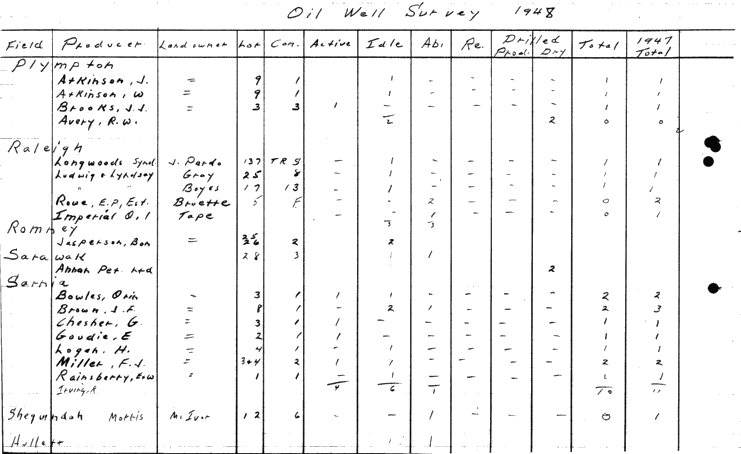 Oil Well Survey 1948
Field Producer Landowner Lot Con. Active Idle Ab. Re. Drilled Prod. Dry Total 1947 Total
Plympton
Atkinson, J. = 9 1 1 - - - - 1 1
Atkinson, W = 9 1 1 - - - - 1 1
Brooks, J.J. = 3 3 1 - - - - - 1 1
Avery, R.W. 2 2 0 0
2
Raleigh
Longwoods Synd. J. Pardo 137 TR 5 - 1 - - - - 1 1
Ludwig & Lyndsay Gray 25 8 - 1 - - - - 1 1
" " Boyes 17 13 - 1 - - - - 1 1
Rowe, E.P, Est. Bruette 5 F - - 2 - - - 0 2
Imperial Oil Tape - - 1 - - - 0 1
3 3
Romney
25
Jasperson, Bon = 26 2 2
Sarawak 28 3 1 1
Annan Pet. Ltd 2
Sarnia
Bowles, Orin = 3 1 1 1 - - - - 2 2
Brown, J.F. = 8 1 - 2 1 - - - 2 3
Chesher, G. = 3 1 1 - - - - - 1 1
Goudie, E = 2 1 1 - - - - - 1 1
Logan, H. = 4 1 - 1 - - - - 1 1
Miller, F.J. = 3+4 2 1 1 - - - - 2 2
Rainsberry, E.W " 1 1 - 1 - - - - 1 1
Irving, R. 4 6 1 10 11
Sheguindah Morris McIvor 12 6 - - 1 - - - 0 1
Hullett 1 1